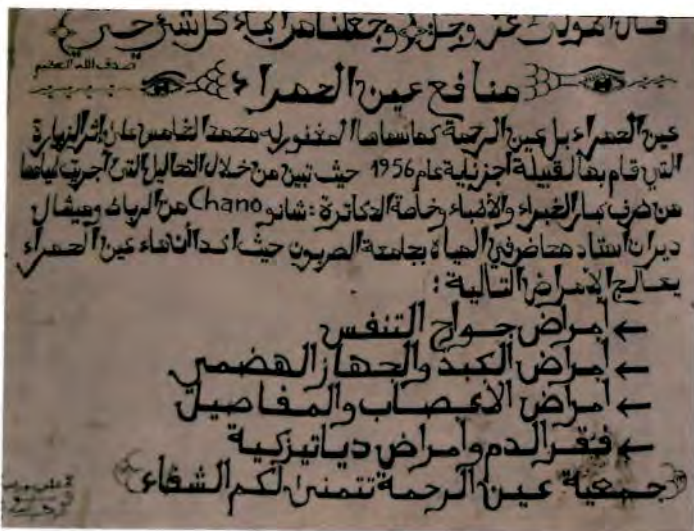 قال المولى عز وجل وجعلنا من الماء كل شيء حي
صدق الله العظيم
منافع عين الحمراء
عين الحمراء بل عين الرحمة كما سماها المغفور له محمد الخامس على إثر الزيارة
التي قام بها لقبيلة اجزناية عام 1956 حيث تبين من خلال التحاليل التي أجريت لمياهها
من طرف كبار الخبراء والأطباء وخاصة الدكاترة : شانو Chano من الرباط وميشال
ديران أستاد محاضر في المياه بجامعة الصربون حيث اكد أن ماء عين الحمراء
يعالج الامراض التالية :
← أمراض جواح التنفس
← أمراض الكبد والجهاز الهضمي
← أمراض الاعصاب والمفاصيل
← فقر الدم وأمراض دياتيزكية
جمعية عين الرحمة تتمنى لكم الشفاء